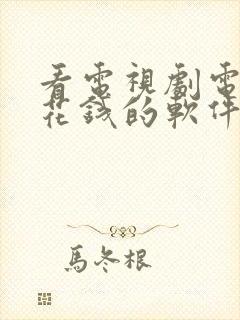 看電視劇電
花錢的軟件
馬冬根